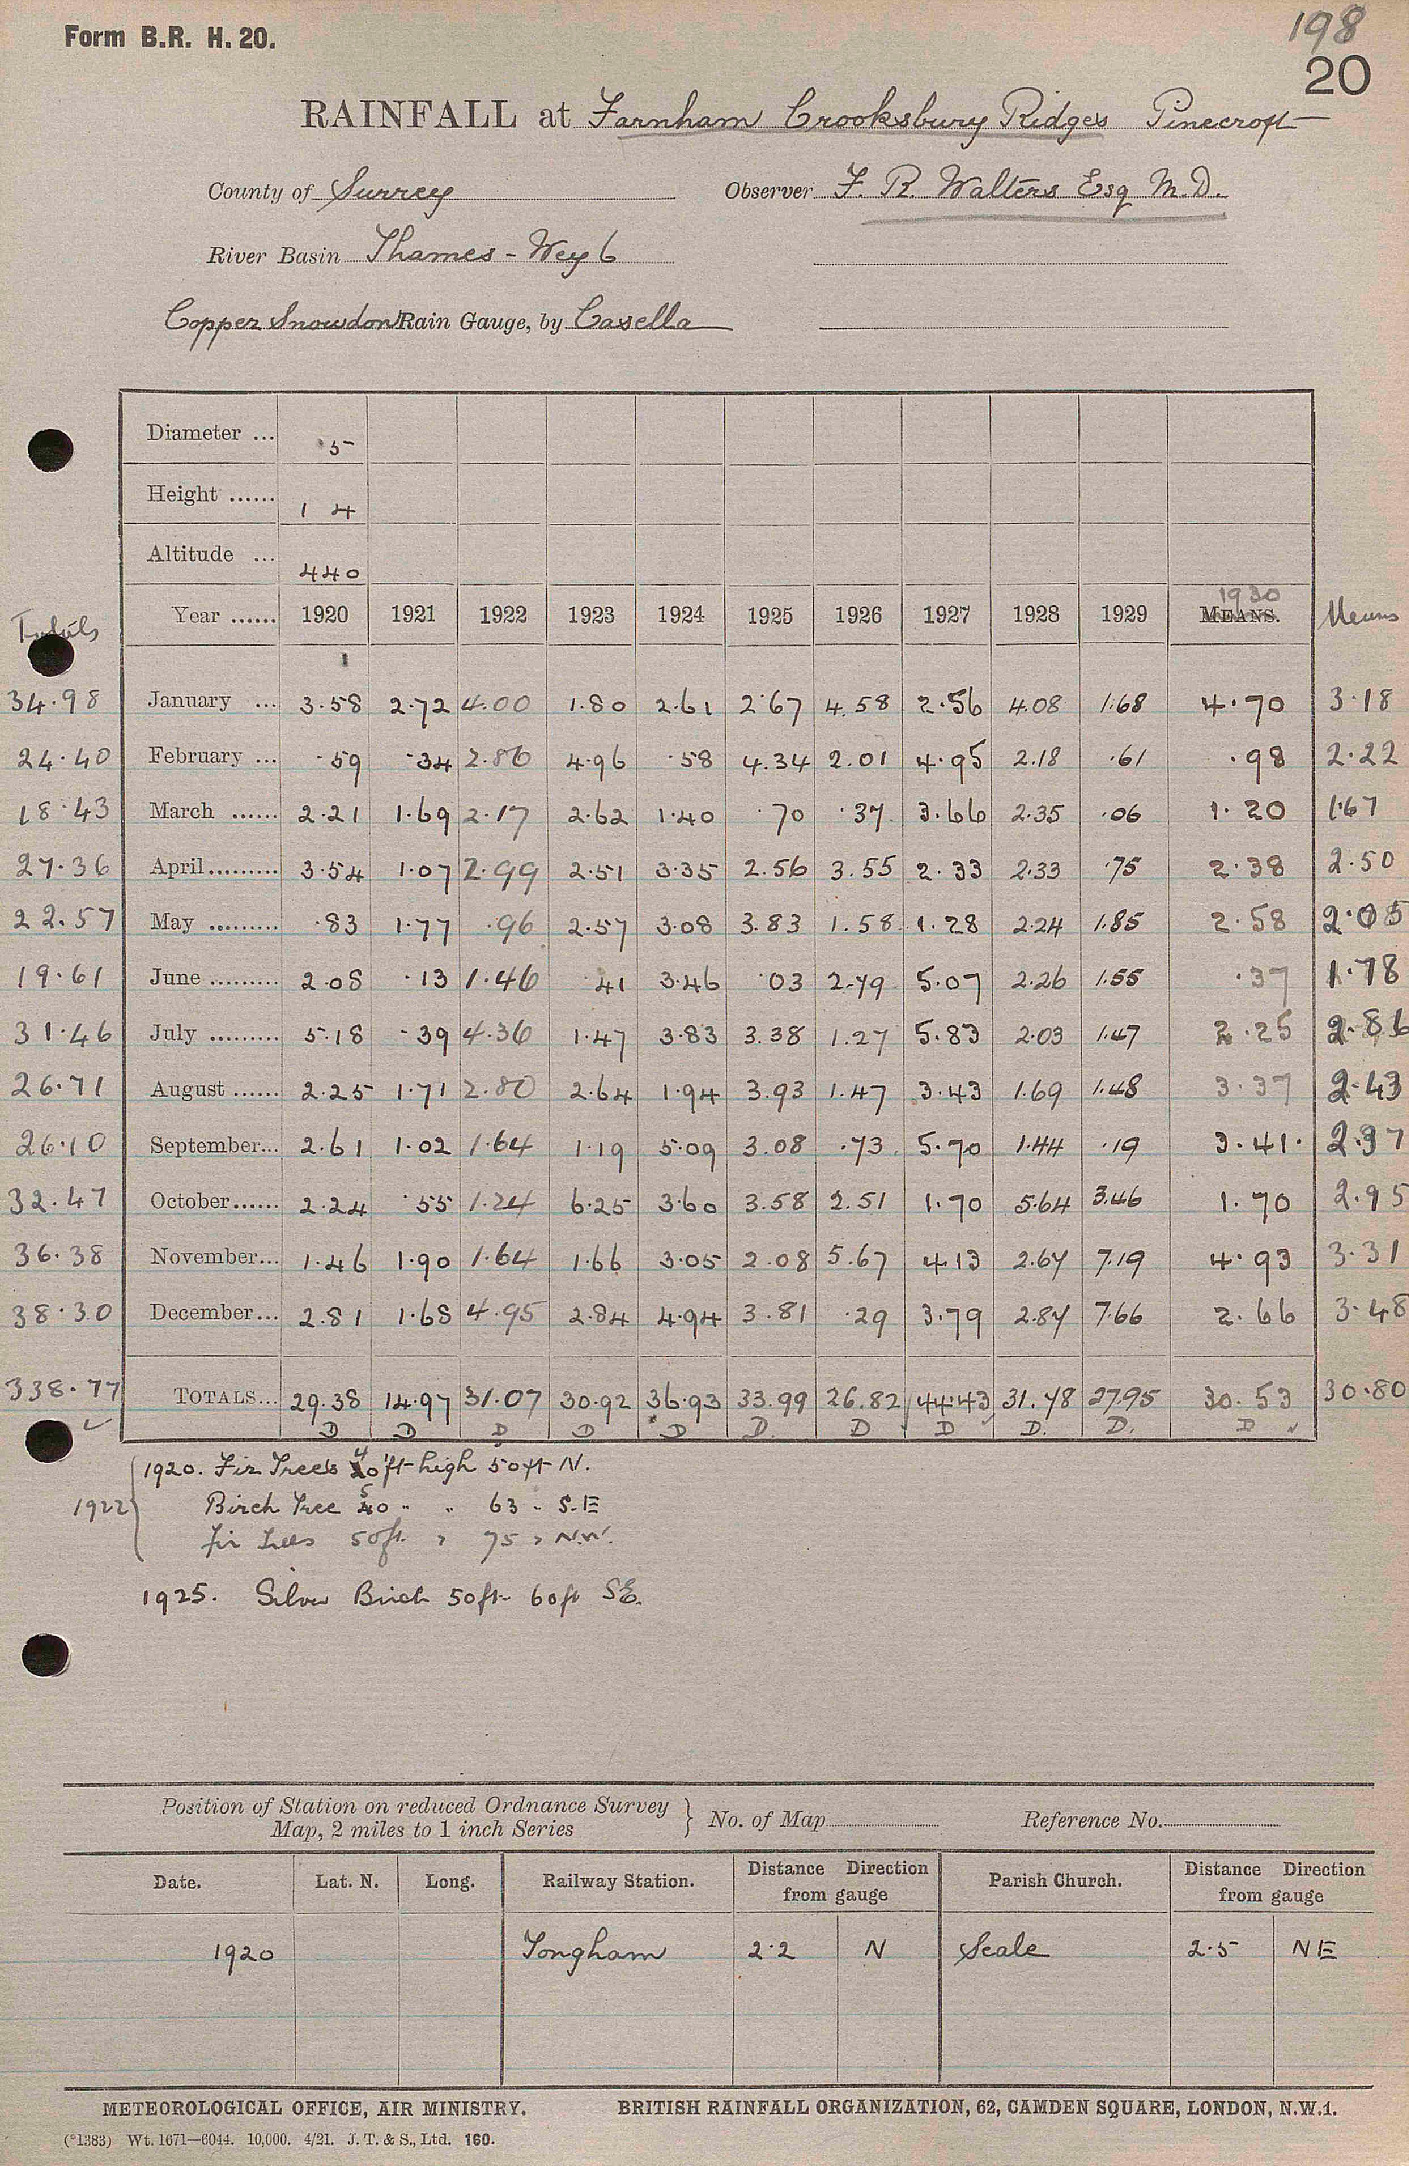 Form B.R. H. 20.
198
20
RAINFALL at Farnham Crooksbury Ridges Pinecroft
County of Surrey Observer F. R. Walters Esq M.D.
River Basin Thames - Wey 6
Copper Snowdon Rain Gauge, by Casella
Diameter ... 5
Height ...... 1 4
Altitude ... 440
Totals Year ...... 1920 1921 1922 1923 1924 1925 1926 1927 1928 1929 1930 MEANS. Means
34.98 January ... 3.58 2.72 4.00 1.80 2.61 2.67 4.58 2.56 4.08 1.68 4.70 3.18
24.40 February ... .59 .34 2.86 4.96 .58 4.34 2.01 4.95 2.18 .61 .98 2.22
18.43 March ...... 2.21 1.69 2.17 2.62 1.40 .70 .37 3.66 2.35 .06 1.20 1.67
27.36 April......... 3.54 1.07 2.99 2.51 3.35 2.56 3.55 2.33 2.33 .75 2.38 2.50
22.57 May ......... .83 1.77 .96 2.57 3.08 3.83 1.58 1.28 2.24 1.85 2.58 2.05
19.61 June ......... 2.08 .13 1.46 .41 3.46 .03 2.79 5.07 2.26 1.55 .37 1.78
31.46 July ......... 5.18 .39 4.36 1.47 3.83 3.38 1.27 5.83 2.03 1.47 2.25 2.86
26.71 August ...... 2.25 1.71 2.80 2.64 1.94 3.93 1.47 3.43 1.69 1.48 3.37 2.43
26.10 September... 2.61 1.02 1.64 1.19 5.09 3.08 .73 5.70 1.44 .19 3.41 2.37
32.47 October...... 2.24 .55 1.24 6.25 3.60 3.58 2.51 1.70 5.64 3.46 1.70 2.95
36.38 November... 1.46 1.90 1.64 1.66 3.05 2.08 5.67 4.13 2.67 7.19 4.93 3.31
38.30 December... 2.81 1.68 4.95 2.84 4.94 3.81 .29 3.79 2.87 7.66 2.66 3.48
338.77 TOTALS... 29.38 14.97 31.07 30.92 36.93 33.99 26.82 44.43 31.78 27.95 30.53 30.80
D D D D D D D D D. D. D
1920. Fir Trees 40ft high 50ft N.
1922 Birch Tree 50 " " 63 " S.E
Fir Trees 50ft. " 75 " N.W.
1925. Silver Birch 50ft 60ft SE.
Position of Station on reduced Ordnance Survey
Map, 2 miles to 1 inch Series } No. of Map Reference No.
Date. Lat. N. Long. Railway Station. Distance Direction from gauge Parish Church. Distance Direction from gauge
1920 Tongham 2.2 N Seale 2.5 NE
METEOROLOGICAL OFFICE, AIR MINISTRY. BRITISH RAINFALL ORGANIZATION, 62, CAMDEN SQUARE, LONDON, N.W.1.
(*1383) Wt. 1671—6044. 10,000. 4/21. J. T. & S., Ltd. 160.